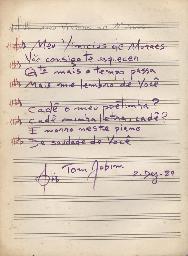 Meu Vinicius de Moraes
Não consigo te esquecer
Quanto mais o tempo passa
Mais me lembro de Você
Cadê o meu poetinha?
Cadê minha letra, cadê?
E morro neste piano
De saudade de Você
Tom Jobim
2. Dez. 80